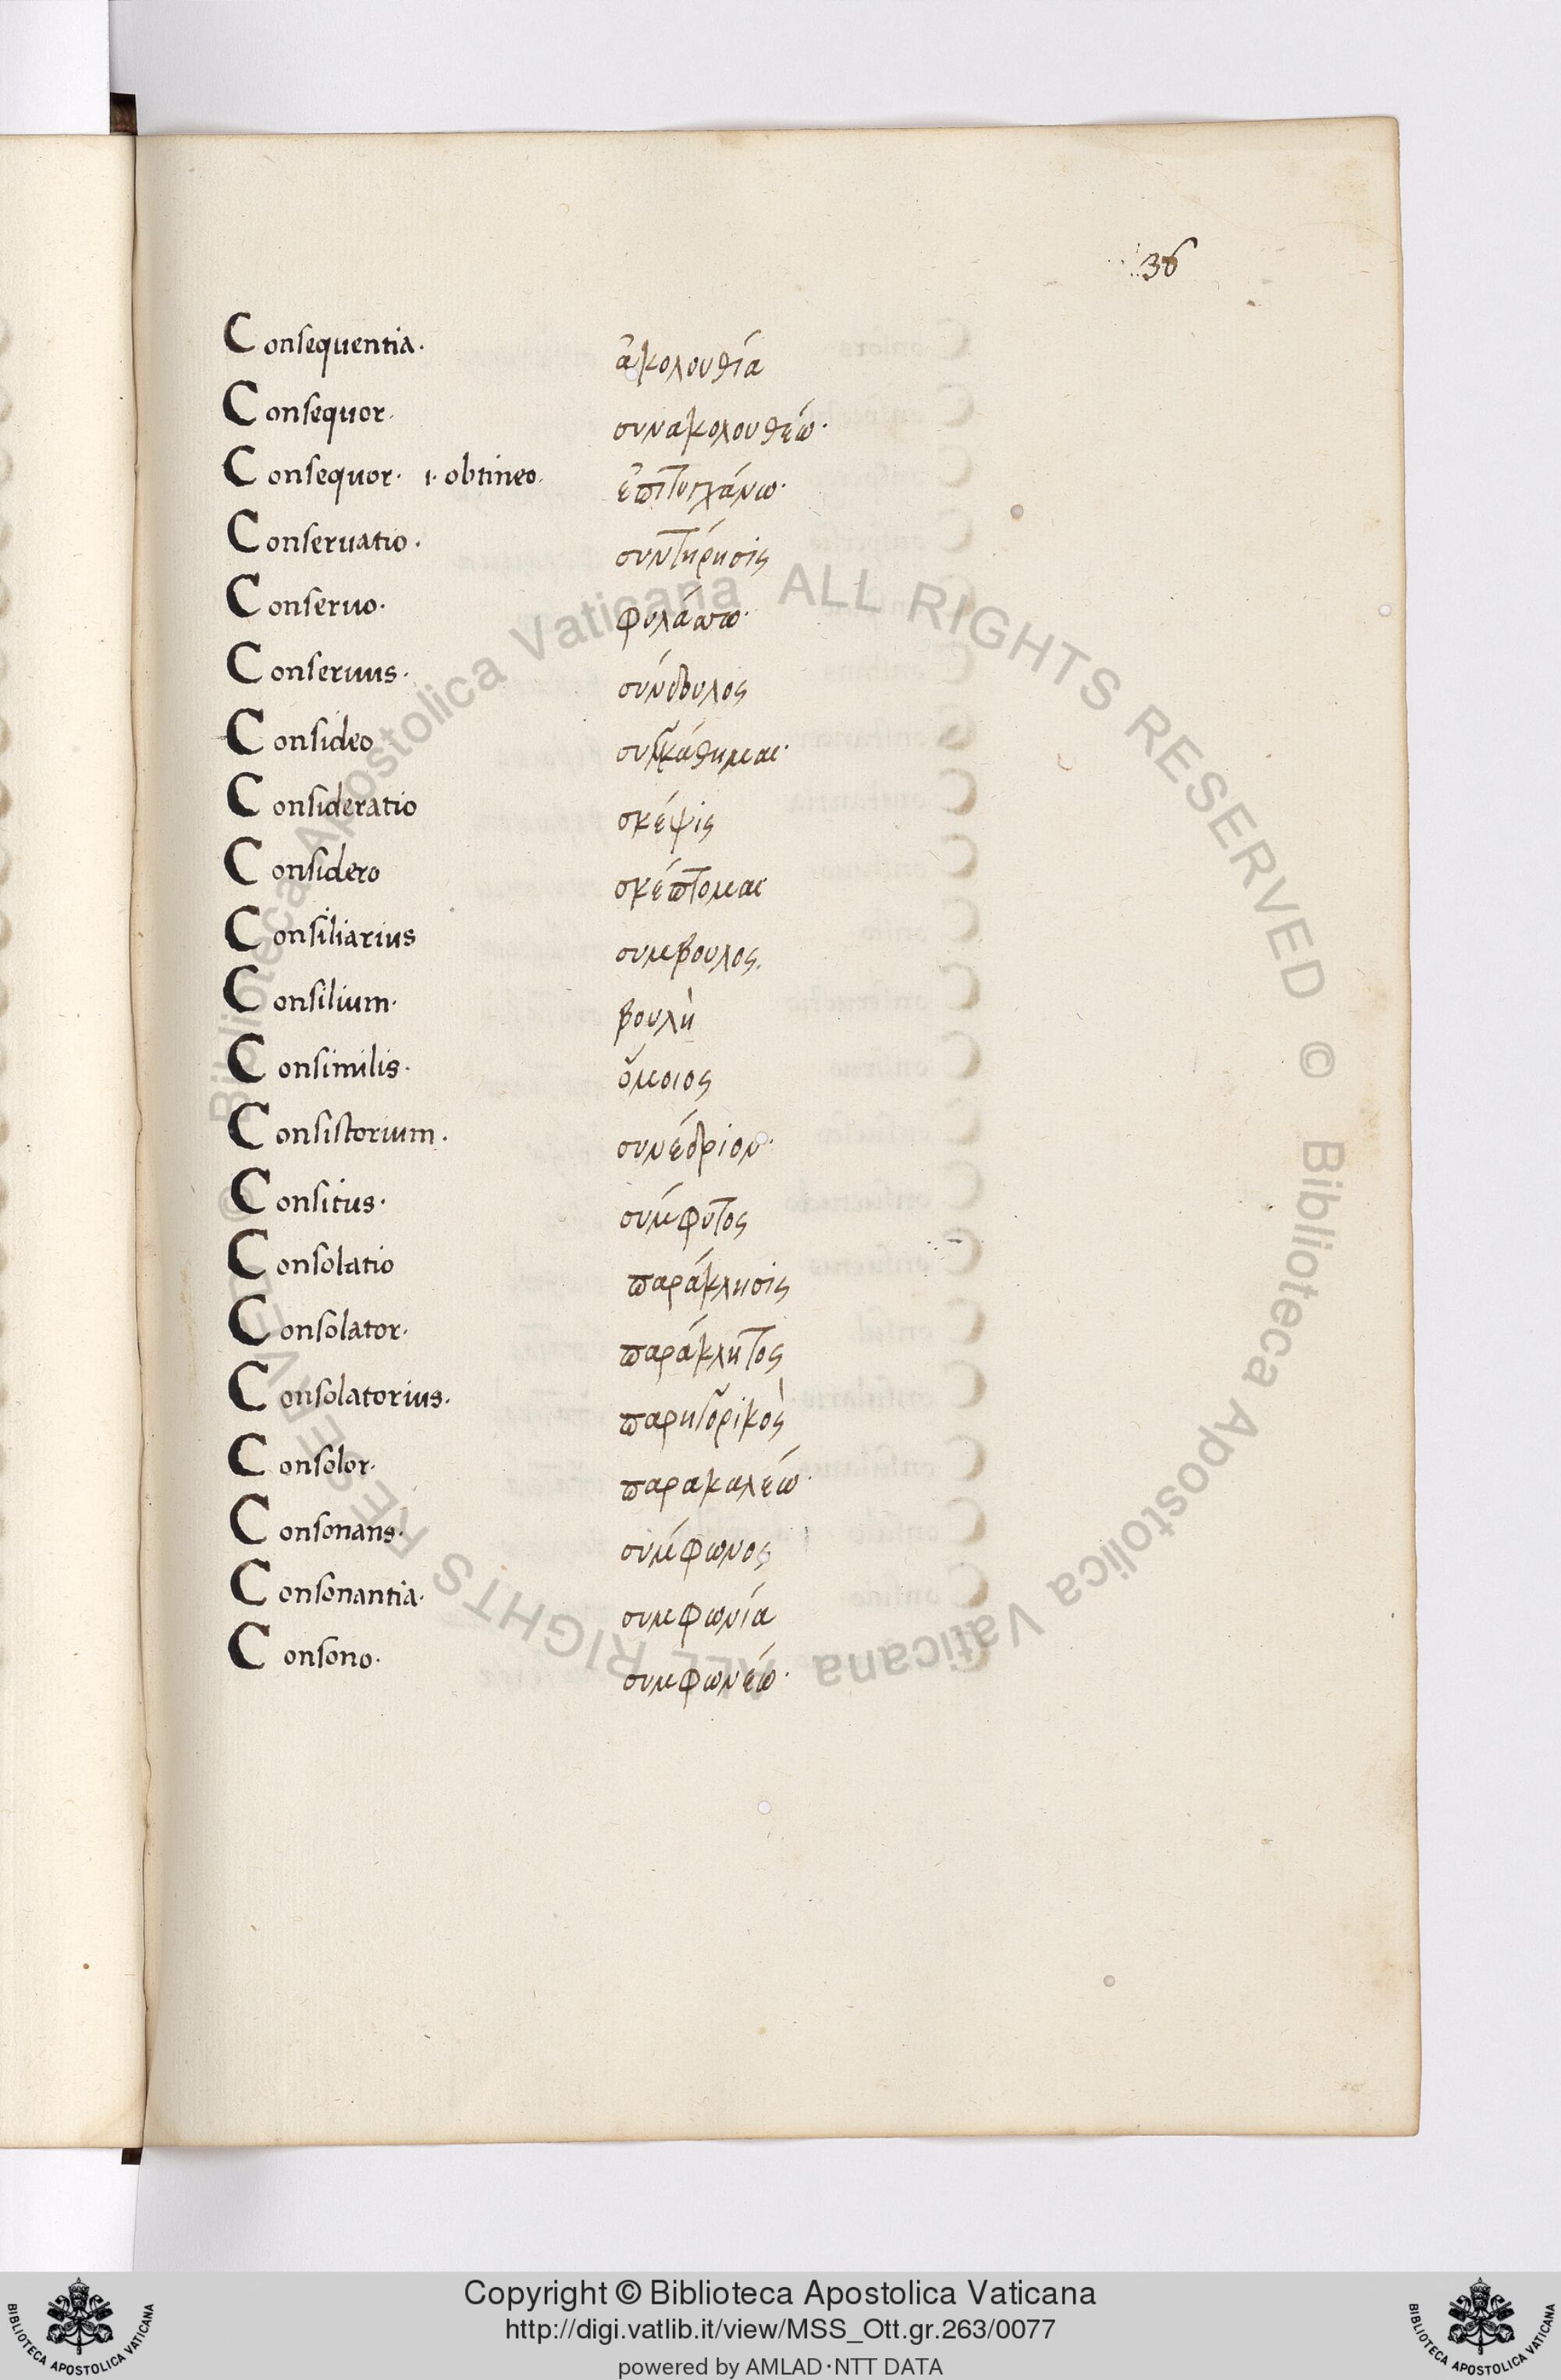 36
Consequentia. ἀκολουθία
Consequor. συνακολουθέω.
Consequor. i. obtineo. ἐπιτυγχάνω.
Conseruatio. συντήρησις
Conseruo. φυλάττω.
Conseruus. σύνδουλος
Consideo συγκάθημαι.
Consideratio σκέψις
Considero σκέπτομαι
Consiliarius συμβουλος.
Consilium. βουλὴ
Consimilis. ὅμοιος
Consistorium. συνέδριον.
Consitus. σύμφυτος
Consolatio παράκλησις
Consolator. παράκλητος
Consolatorius. παρηγορικὸς
Consolor. παρακαλέω.
Consonans. σύμφωνος
Consonantia. συμφωνία
Consono. συμφωνέω.
© Biblioteca Apostolica Vaticana ALL RIGHTS RESERVED © Biblioteca Apostolica Vaticana ALL RIGHTS RESERVED
Copyright © Biblioteca Apostolica Vaticana
http://digi.vatlib.it/view/MSS_Ott.gr.263/0077
powered by AMLAD·NTT DATA
BIBLIOTECA APOSTOLICA VATICANA
BIBLIOTECA APOSTOLICA VATICANA